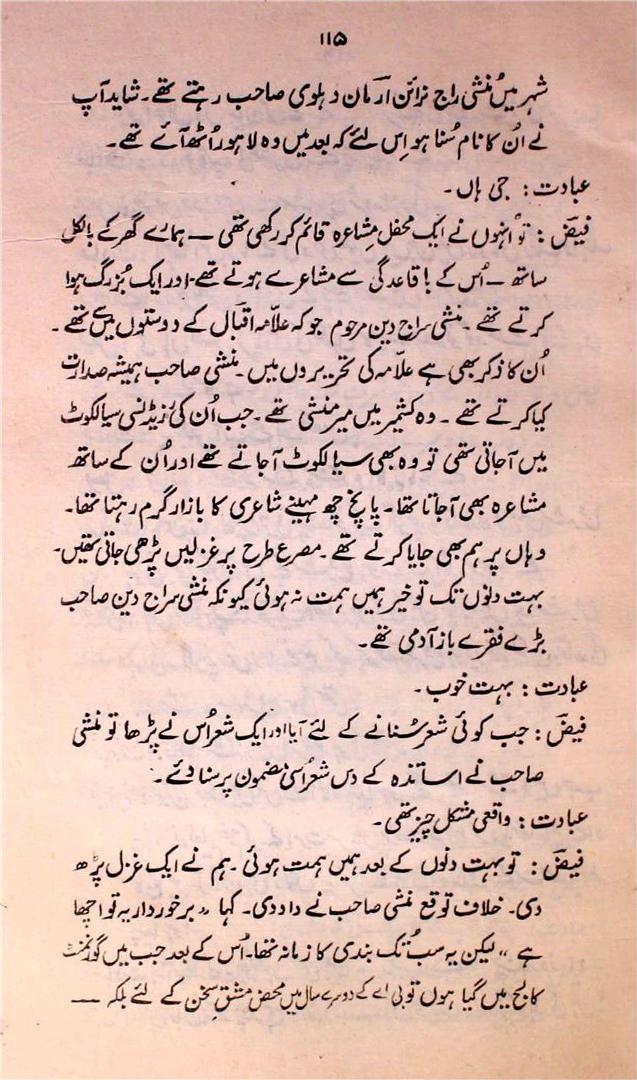 ۱۱۵
شہر میں منشی راج نرائن ارمان دہلوی صاحب رہتے تھے۔ شاید آپ
نے اُن کا نام سُنا ہو اِس لئے کہ بعد میں وہ لاہور اُٹھ آئے تھے۔
عبادت: جی ہاں۔
فیضؔ: تو انہوں نے ایک محفل مشاعرہ قائم کر رکھی تھی ــ ہمارے گھر کے بالکل
ساتھ ــ اُس کے باقاعدگی سے مشاعرے ہوتے تھے۔ اور ایک بُزرگ ہوا
کرتے تھے۔ منشی سراج دین مرحوم جو کہ علاّمہ اقبال کے دوستوں میں تھے۔
اُن کا ذکر بھی ہے علاّمہ کی تحریروں میں۔ منشی صاحب ہمیشہ صدارت
کیا کرتے تھے۔ وہ کشمیر میں میر منشی تھے۔ جب اُن کی ریذیڈنسی سیالکوٹ
میں آجاتی تھی تو وہ بھی سیالکوٹ آجاتے تھے اور اُن کے ساتھ
مشاعرہ بھی آجاتا تھا۔ پانچ چھ مہینے شاعری کا بازار گرم رہتا تھا۔
وہاں پر ہم بھی جایا کرتے تھے۔ مصرع طرح پر غزلیں پڑھی جاتی تھیں۔
بہت دنوں تک تو خیر ہمیں ہمت نہ ہوئی کیونکہ منشی سراج دین صاحب
بڑے فقرے باز آدمی تھے۔
عبادت: بہت خوب۔
فیضؔ: جب کوئی شعر سُنانے کے لئے آیا اور ایک شعر اُس نے پڑھا تو منشی
صاحب نے اساتذہ کے دس شعر اُسی مضمون پر سنا دئے۔
عبادت: واقعی مشکل چیز تھی۔
فیضؔ: تو بہت دنوں کے بعد ہمیں ہمت ہوئی۔ ہم نے ایک غزل پڑھ
دی۔ خلاف توقع منشی صاحب نے داد دی۔ کہا ،، برخوردار یہ تو اچھا
ہے ،، لیکن یہ سب تُک بندی کا زمانہ تھا۔ اُس کے بعد جب میں گورنمنٹ
کالج میں گیا ہوں تو بی اے کے دوسرے سال میں محض مشق سخن کے لئے بلکہ ــ